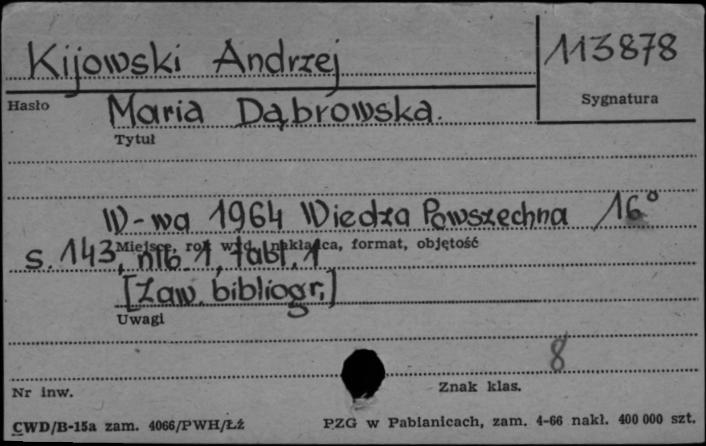 Kijowski Andrzej 113878
Hasło Sygnatura
Maria Dąbrowska.
Tytuł
W-wa 1964 Wiedza Powszechna 16°
Miejsce, rok wyd., nakładca, format, objętość
s. 143, nlb. 1, tabl. 1
[Zaw. bibliogr.]
Uwagi
8
Nr inw. Znak klas.
CWD/B-15a zam. 4066/PWH/Łź PZG w Pabianicach, zam. 4-66 nakł. 400 000 szt.